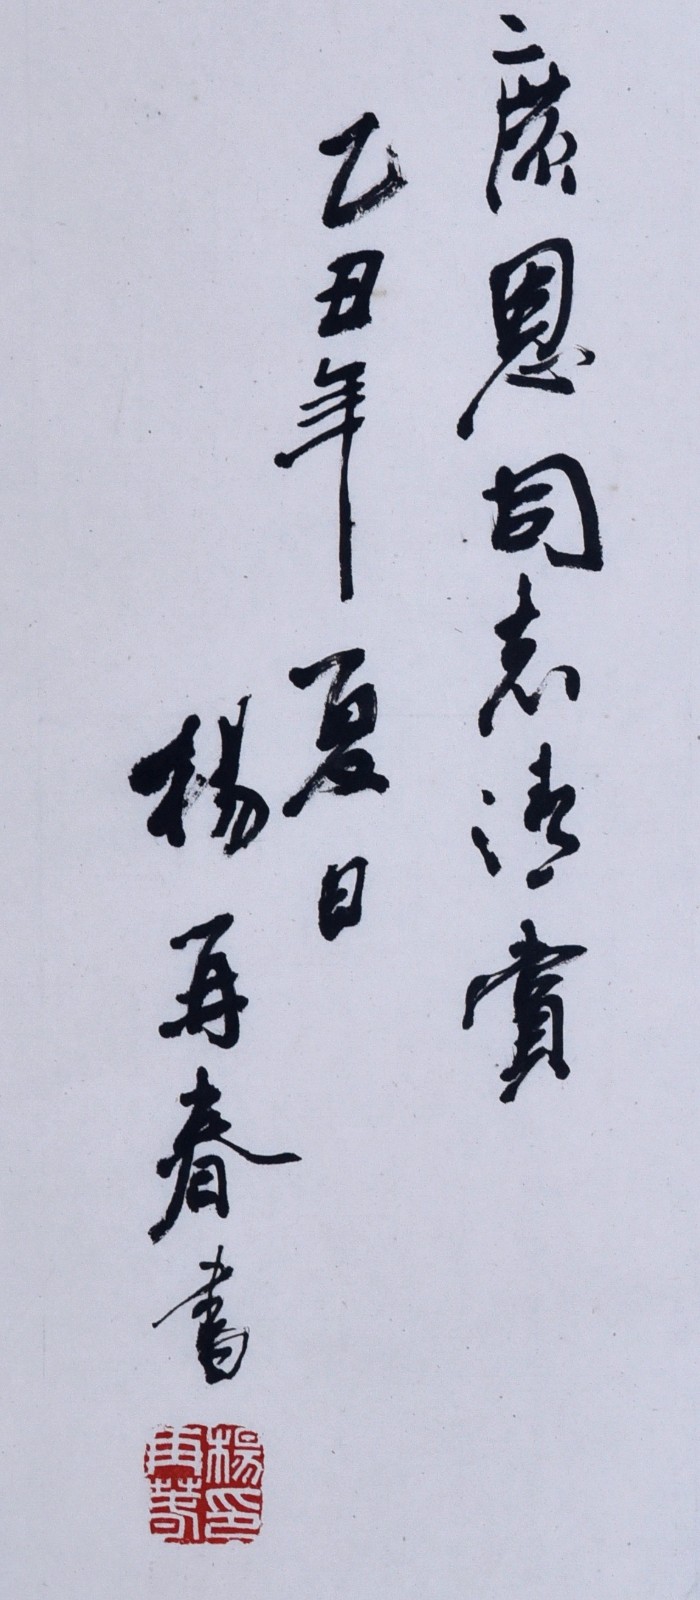 恩同志清賞
乙丑年夏日
楊再春書
楊印
再春